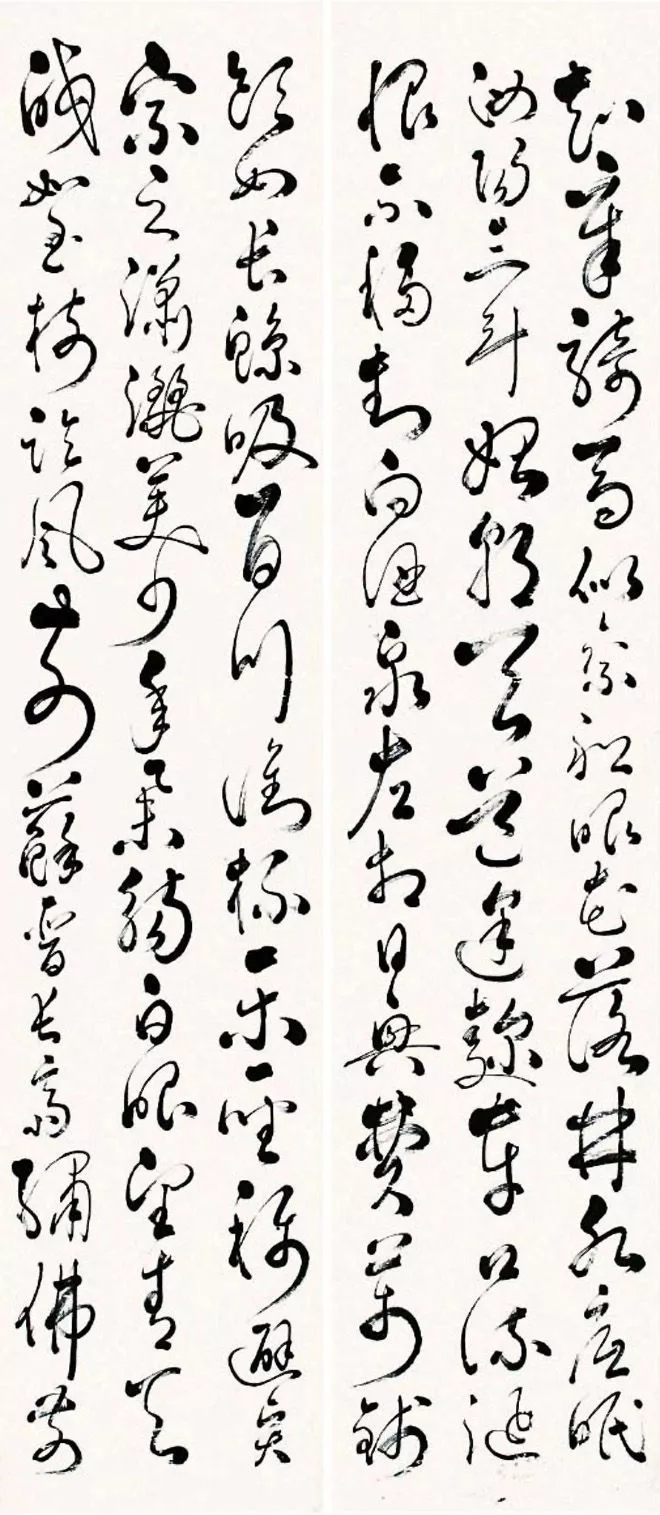 知章騎馬似乘船眼花落井水底眠
汝陽三斗始朝天道逢麴車口流涎
恨不移封向酒泉左相日興費萬錢
飲如長鯨吸百川銜杯樂聖稱避賢
宗之瀟灑美少年舉觴白眼望青天
皎如玉樹臨風前蘇晉長齋繡佛前